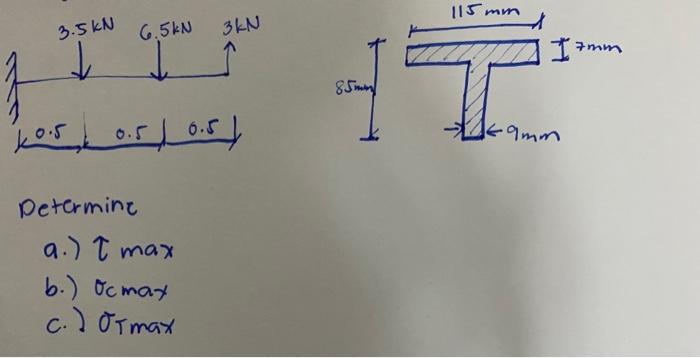 3.5kN 6.5kN 3kN
0.5 0.5 0.5
115 mm
7mm
85mm
9mm
Determine
a.) τ max
b.) σc max
c.) σT max